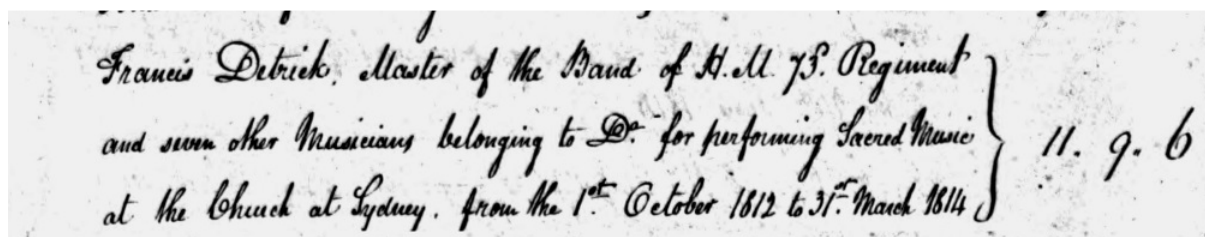 Francis Detrick, Master of the Band of H.M. 73d. Regiment
and seven other Musicians belonging to Do. for performing Sacred Music
at the Church at Sydney, from the 1st. October 1812 to 31st. March 1814 } 11. 9. 6